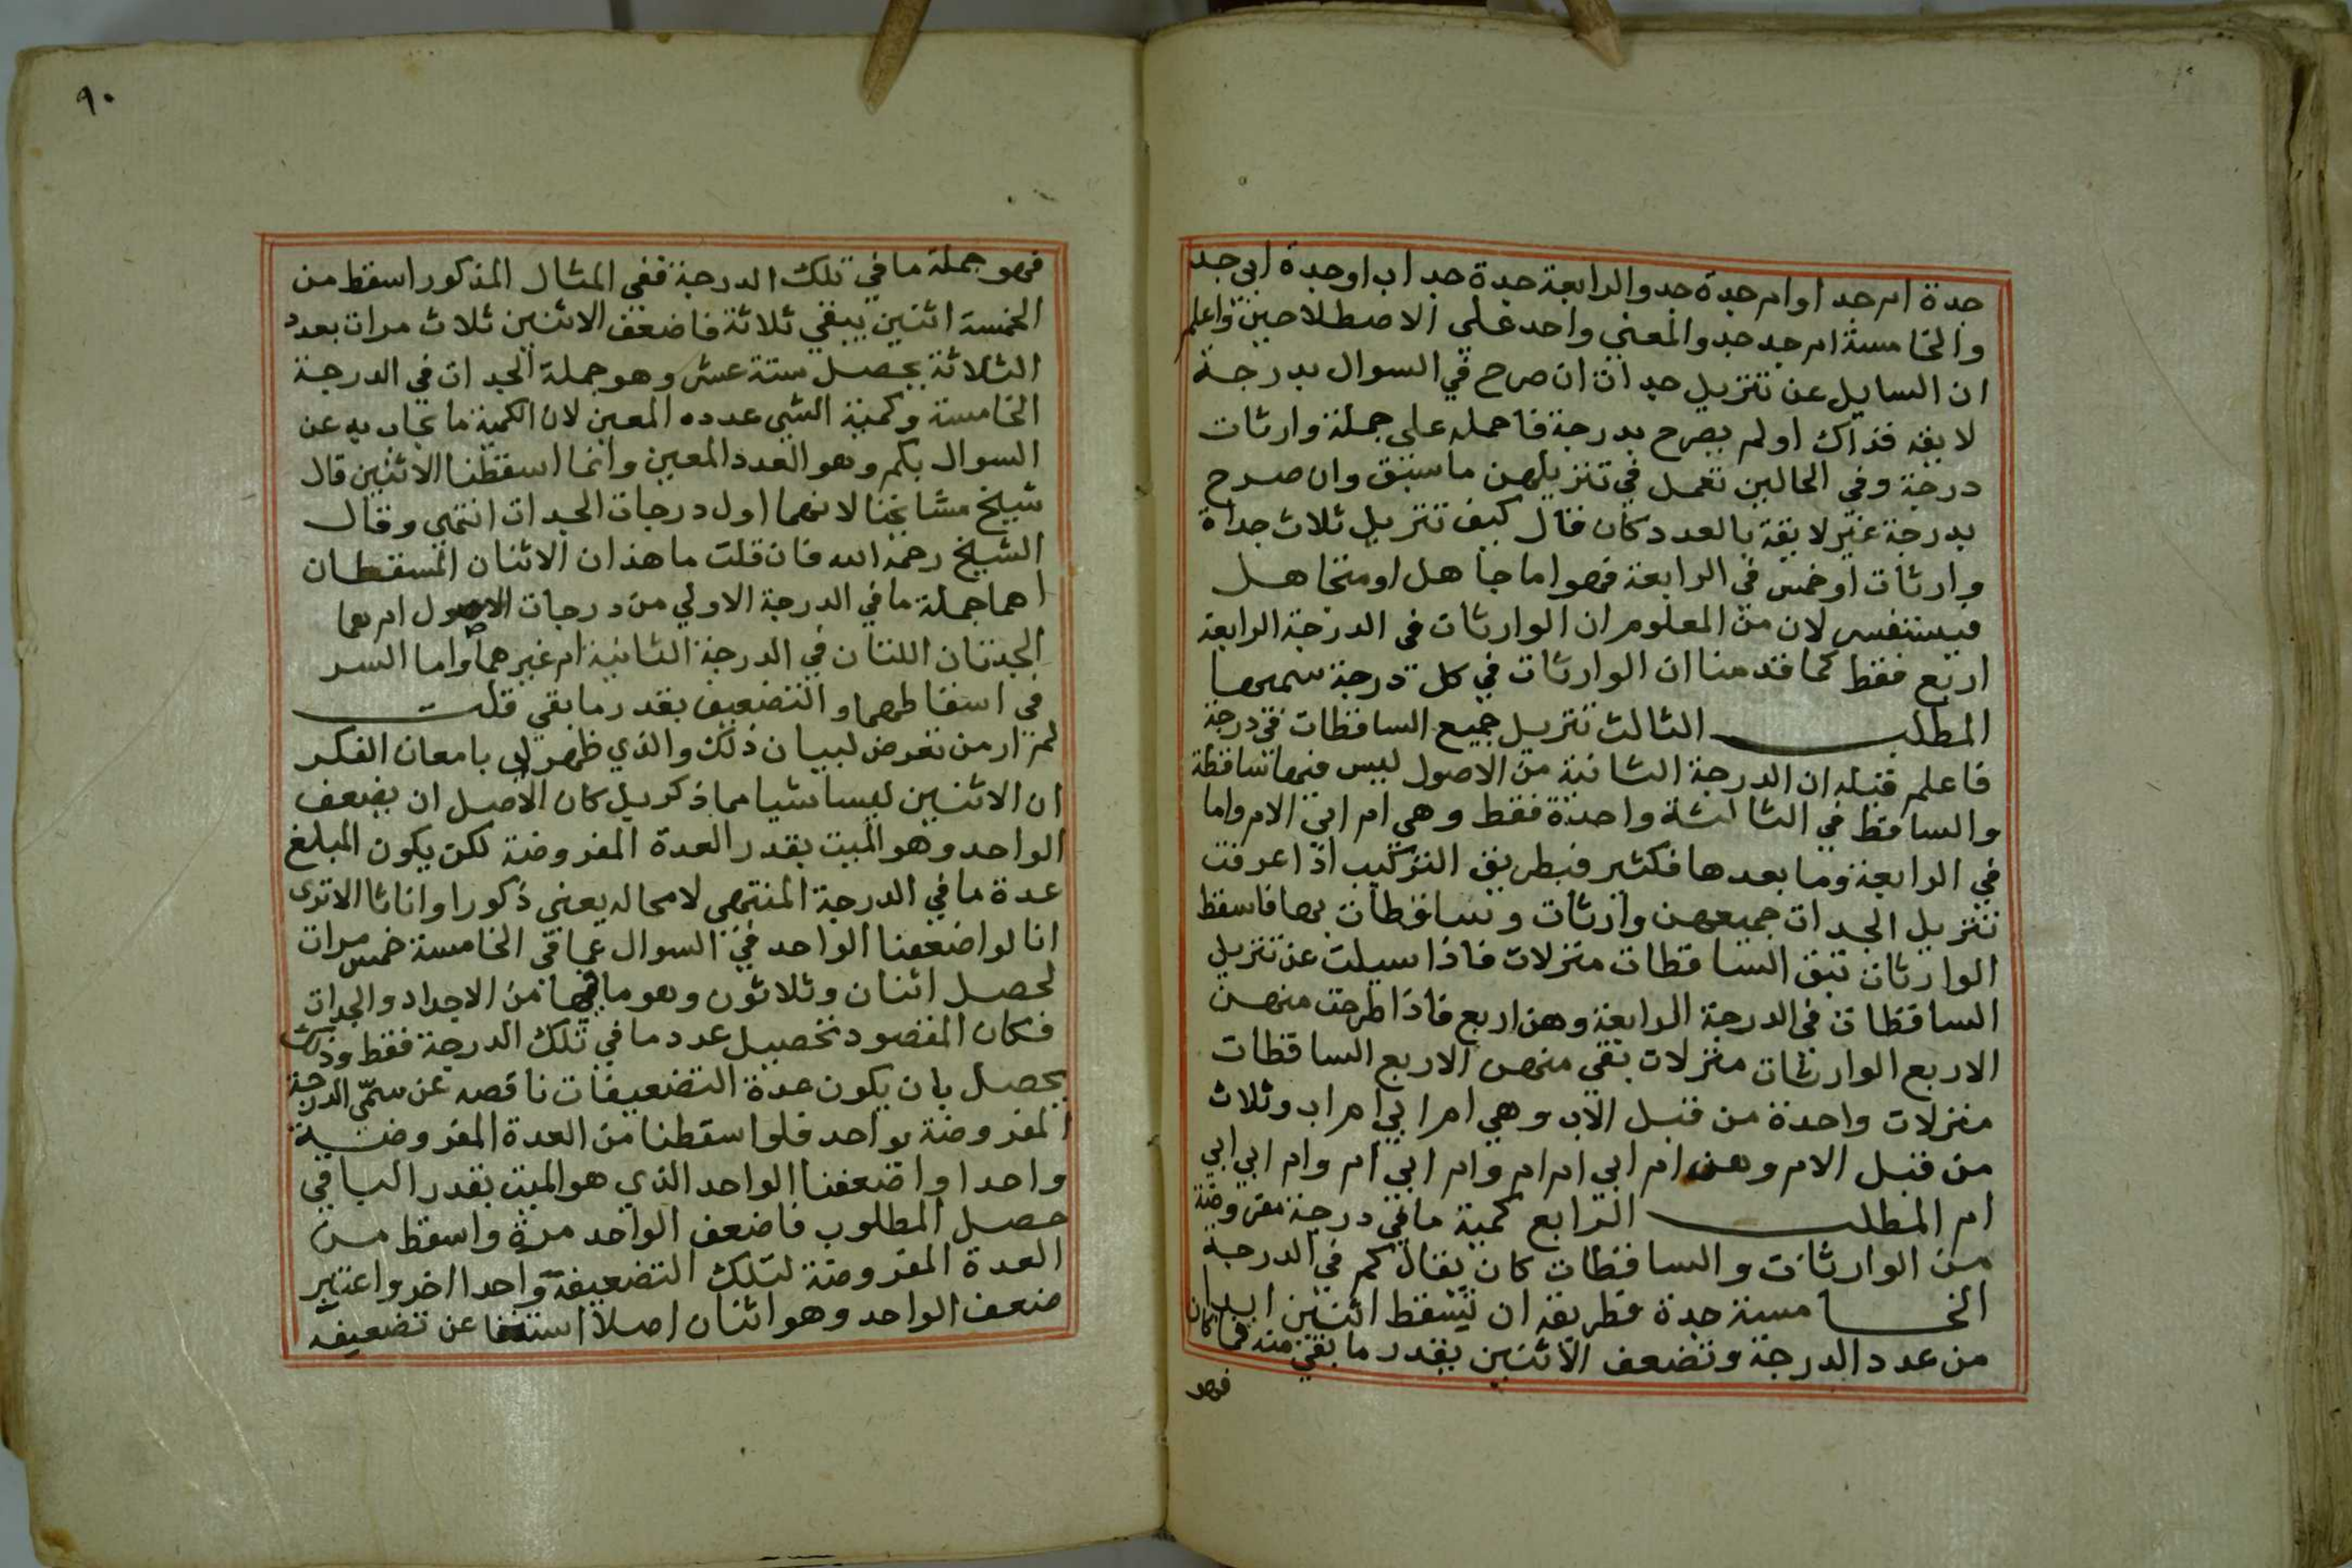 جدة ام جد او ام جدة جد والرابعة جدة جد اب او جدة ابي جد
والخامسة ام جد جد والمعني واحد علي الاصطلاحين واعلم
ان السايل عن تنزيل جدات ان صرح في السوال بدرجة
لايقه فذاك او لم يصرح بدرجة فاحمله علي جملة وارثات
درجة وفي الحالين تعمل في تنزيلهن ما سبق وان صرح
بدرجة غير لايقة بالعدد كان قال كيف تنزيل ثلاث جداة
وارثات او خمس في الرابعة فهو اما جاهل او متجاهل
فيستفسر لان من المعلوم ان الوارثات في الدرجة الرابعة
اربع فقط كما قدمنا ان الوارثات في كل درجة سميها
المطلب الثالث تنزيل جميع الساقطات في درجة
فاعلم قبله ان الدرجة الثانية من الاصول ليس فيها ساقطة
والساقط في الثالثة واحدة فقط وهي ام ابي الام واما
في الرابعة وما بعدها فكثير فبطريق التركيب اذا عرفت
تنزيل الجدات جميعهن وارثات وساقطات بها فاسقط
الوارثات تبق الساقطات منزلات فاذا سيلت عن تنزيل
الساقطات في الدرجة الرابعة وهن اربع فاذا طرحت منهن
الاربع الوارثات منزلات بقي منهن الاربع الساقطات
منزلات واحدة من قبل الاب وهي ام ابي ام اب وثلاث
من قبل الام وهن ام ابي ام ام وام ابي ام وام ابي ابي
ام المطلب الرابع كمية ما في درجة مفروضة
من الوارثات والساقطات كان يقال كم في الدرجة
الخامسة جدة فطريقه ان تسقط اثنين ابدا
من عدد الدرجة وتضعف الاثنين بقدر ما بقي منه فما كان
فهو
٩٠
فهو جملة ما في تلك الدرجة ففي المثال المذكور اسقط من
الخمسة اثنين يبقي ثلاثة فاضعف الاثنين ثلاث مرات بعدد
الثلاثة يحصل ستة عشر وهو جملة الجدات في الدرجة
الخامسة وكمية الشي عدده المعين لان الكمية ما يجاب به عن
السوال بكم وهو العدد المعين وانما اسقطنا الاثنين قال
شيخ مشايخنا لانهما اول درجات الجدات انتهي وقال
الشيخ رحمه الله فان قلت ما هذان الاثنان المسقطان
اهما جملة ما في الدرجة الاولي من درجات الاصول ام هما
الجدتان اللتان في الدرجة الثانية ام غيرهما واما السر
في اسقاطهما والتضعيف بقدر ما بقي قلت
لم ار من تعرض لبيان ذلك والذي ظهر لي بامعان الفكر
ان الاثنين ليسا شيا مما ذكر بل كان الاصل ان يضعف
الواحد وهو الميت بقدر العدة المفروضة لكن يكون المبلغ
عدة ما في الدرجة المنتهي لا محاله يعني ذكورا واناثا الا تري
انا لو اضعفنا الواحد في السوال عما في الخامسة خمس مرات
لحصل اثنان وثلاثون وهو ما فيها من الاجداد والجدات
فكان المقصود تحصيل عدد ما في تلك الدرجة فقط وذلك
يحصل بان يكون عدة التضعيفات ناقصه عن سمي الدرجة
المفروضة بواحد فلو اسقطنا من العدة المفروضة
واحدا واضعفنا الواحد الذي هو الميت بقدر الباقي
حصل المطلوب فاضعف الواحد مرة واسقط من
العدة المفروضة لتلك التضعيفة واحدا اخر واعتبر
ضعف الواحد وهو اثنان اصلا استغنا عن تضعيفه